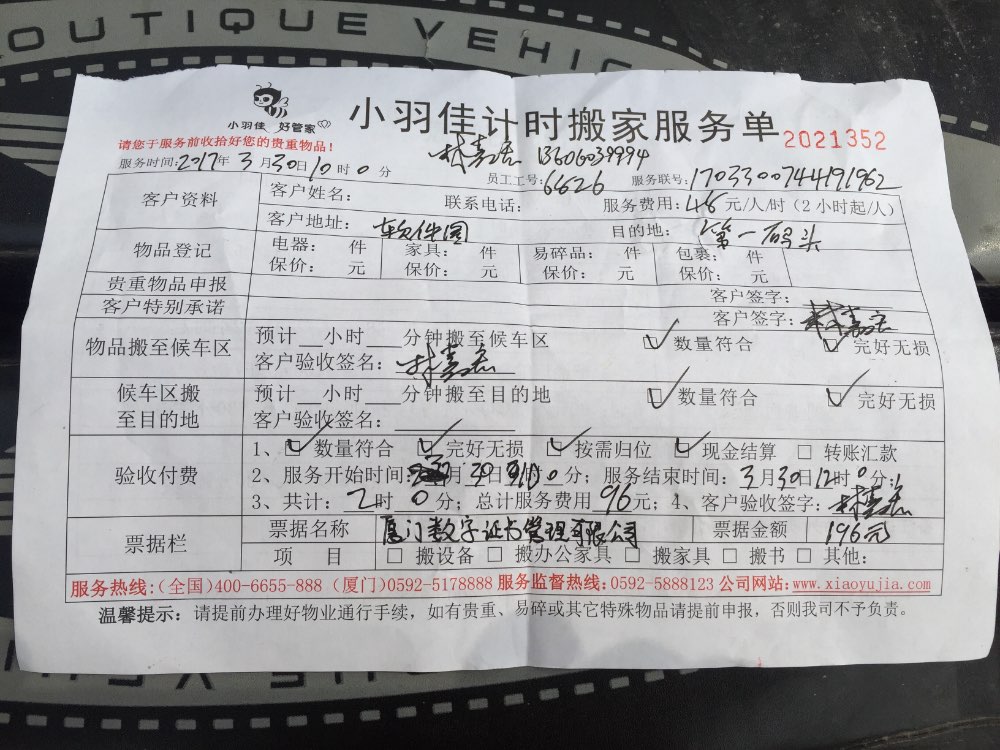 BOUTIQUE VEHIC
小羽佳 好管家
小羽佳计时搬家服务单
2021352
请您于服务前收拾好您的贵重物品!
13606039994
服务时间:2017年3月30日10时0分
员工工号:6626 服务联号:1703300744191962
客户资料 客户姓名: 联系电话: 服务费用:48元/人/时(2小时起/人)
客户地址:软件园 目的地:第一码头
物品登记 电器: 件 家具: 件 易碎品: 件 包裹: 件
保价: 元 保价: 元 保价: 元 保价: 元
贵重物品申报 客户签字:
客户特别承诺 客户签字:
物品搬至候车区 预计__小时__分钟搬至候车区 数量符合 完好无损
客户验收签名:
候车区搬至目的地 预计__小时__分钟搬至目的地 数量符合 完好无损
客户验收签名:
验收付费 1、数量符合 完好无损 按需归位 现金结算 转账汇款
2、服务开始时间: 月30日 10时0分;服务结束时间:3月30日12时0分;
3、共计:2时0分;总计服务费用96元;4、客户验收签字:
票据栏 票据名称 厦门数字证书管理有限公司 票据金额 196元
项 目 搬设备 搬办公家具 搬家具 搬书 其他:
服务热线:(全国)400-6655-888 (厦门)0592-5178888 服务监督热线:0592-5888123 公司网站:www.xiaoyujia.com
温馨提示:请提前办理好物业通行手续,如有贵重、易碎或其它特殊物品请提前申报,否则我司不予负责。